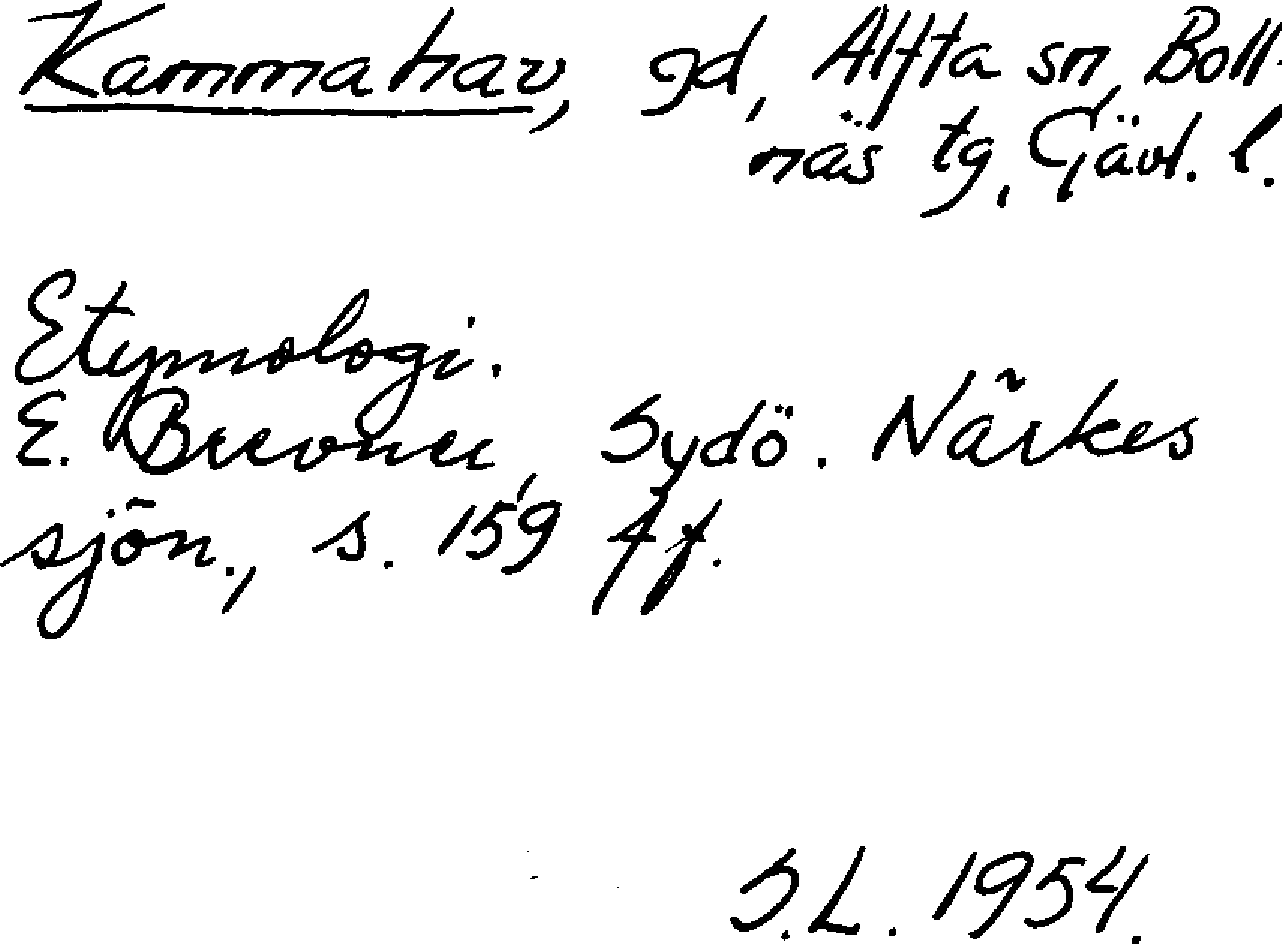 Kammahav, gd, Alfta sn, Boll-
näs tg, Gävl. l.
Etymologi.
E. Brevner, Sydö. Närkes
sjön., s. 159 ff.
S.L. 1954.